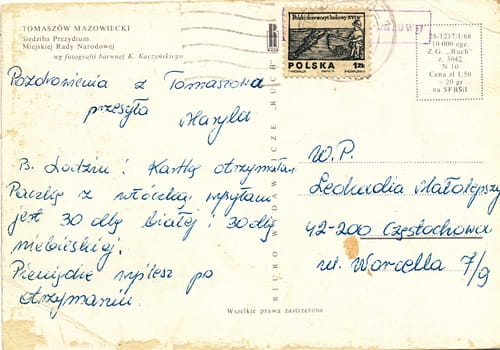 TOMASZÓW MAZOWIECKI
Siedziba Prezydium
Miejskiej Rady Narodowej
wg fotografii barwnej K. Kaczyńskiego
Pozdrowienia z Tomaszowa
przesyła
Maryla
B. Lodziu! Kartkę otrzymałam.
Paczkę z włóczką wysyłam
jest 30 dkg białej i 30 dkg
niebieskiej.
Pieniądze wyślesz po
otrzymaniu.
BIURO WYDAWNICZE „RUCH"
Wszelkie prawa zastrzeżone
POLSKA
1zł
28-1217/I/68
10 000 egz.
Z.G. „Ruch"
z. 3042
N 10
Cena zł 1,50
- 20 gr
na SFBSiI
W.P.
Leokadia Małolepszy
42-200 Częstochowa
ul. Worcella 7/9